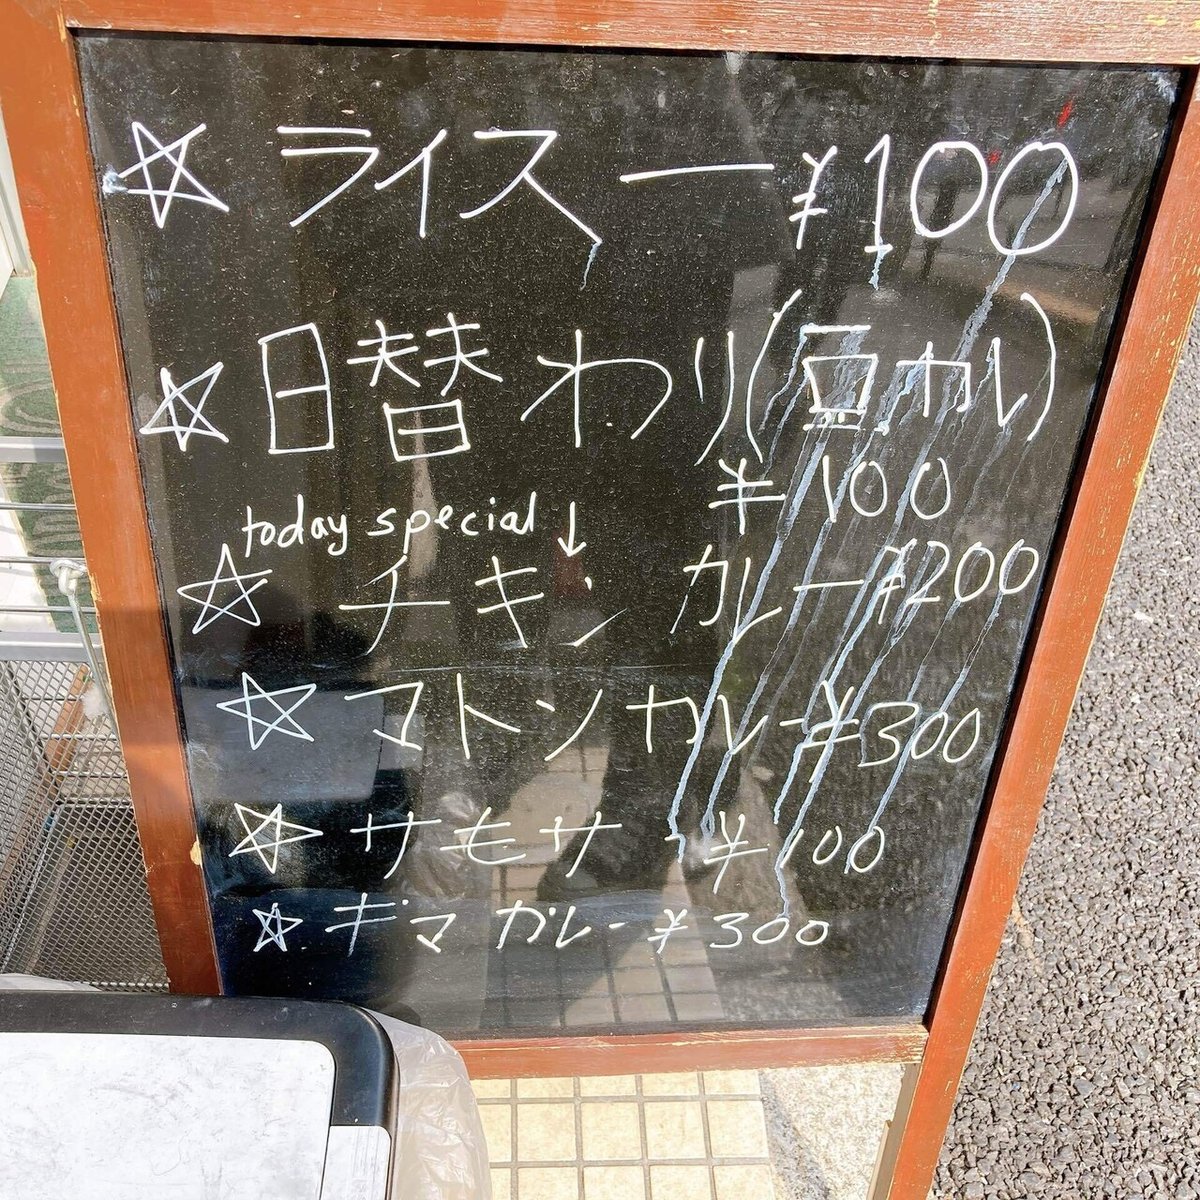 ☆ ライスー ¥100
☆ 日替わり(豆カレ)
¥100
today special ↓
☆ チキン カレー ¥200
☆ マトン カレー ¥300
☆ サモサ ¥100
☆ ギマ カレー ¥300